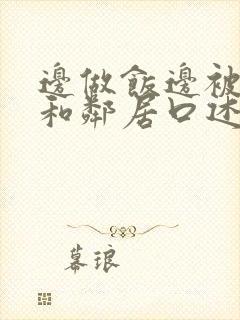 邊做飯邊被
和鄰居口述
幕琅